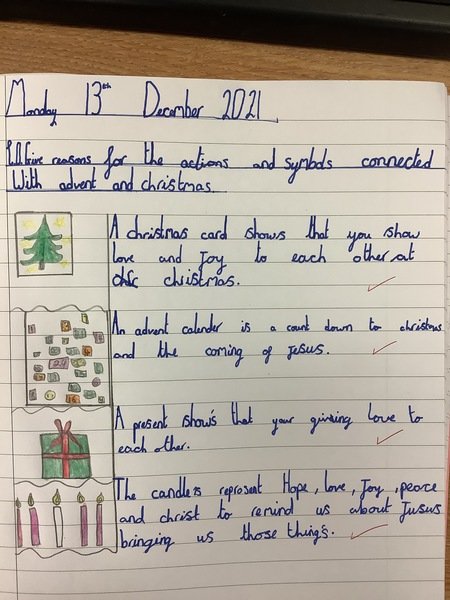 Monday 13th December 2021
L.O. Give reasons for the actions and symbols connected
With advent and christmas.
A christmas card shows that you show
love and Joy to each other at
christmas.
An advent calender is a count down to christmas
and the coming of Jesus.
24
A present show's that your giving love to
each other.
The candles represent Hope, love, Joy, peace
and christ to remind us about Jusus
bringing us those thing's.